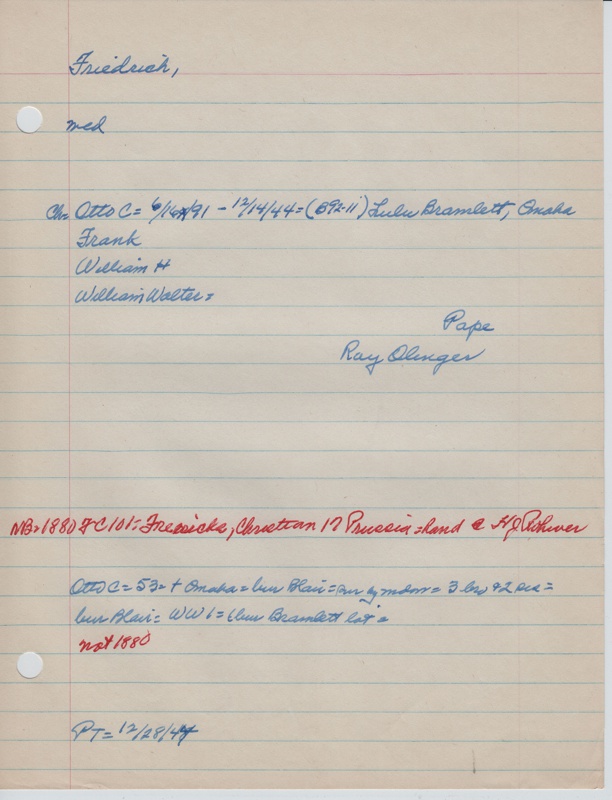 Friedrich,
med
Ch= Otto C = 6/16/91 - 12/14/44 = (B92-11) Lulu Bramlett, Omaha
Frank
William H
William Walter =
Pape
Ray Olinger
NB = 1880 FC 101 = Frericks, Christian 17 Prussia = hand @ H J Rohwer
Otto C = 53 = + Omaha = bur Blair = sur by m dom = 3 bro & 2 sis =
bur Blair = WW 1 = (bur Bramlett lot =
not 1880
PT = 12/28/44